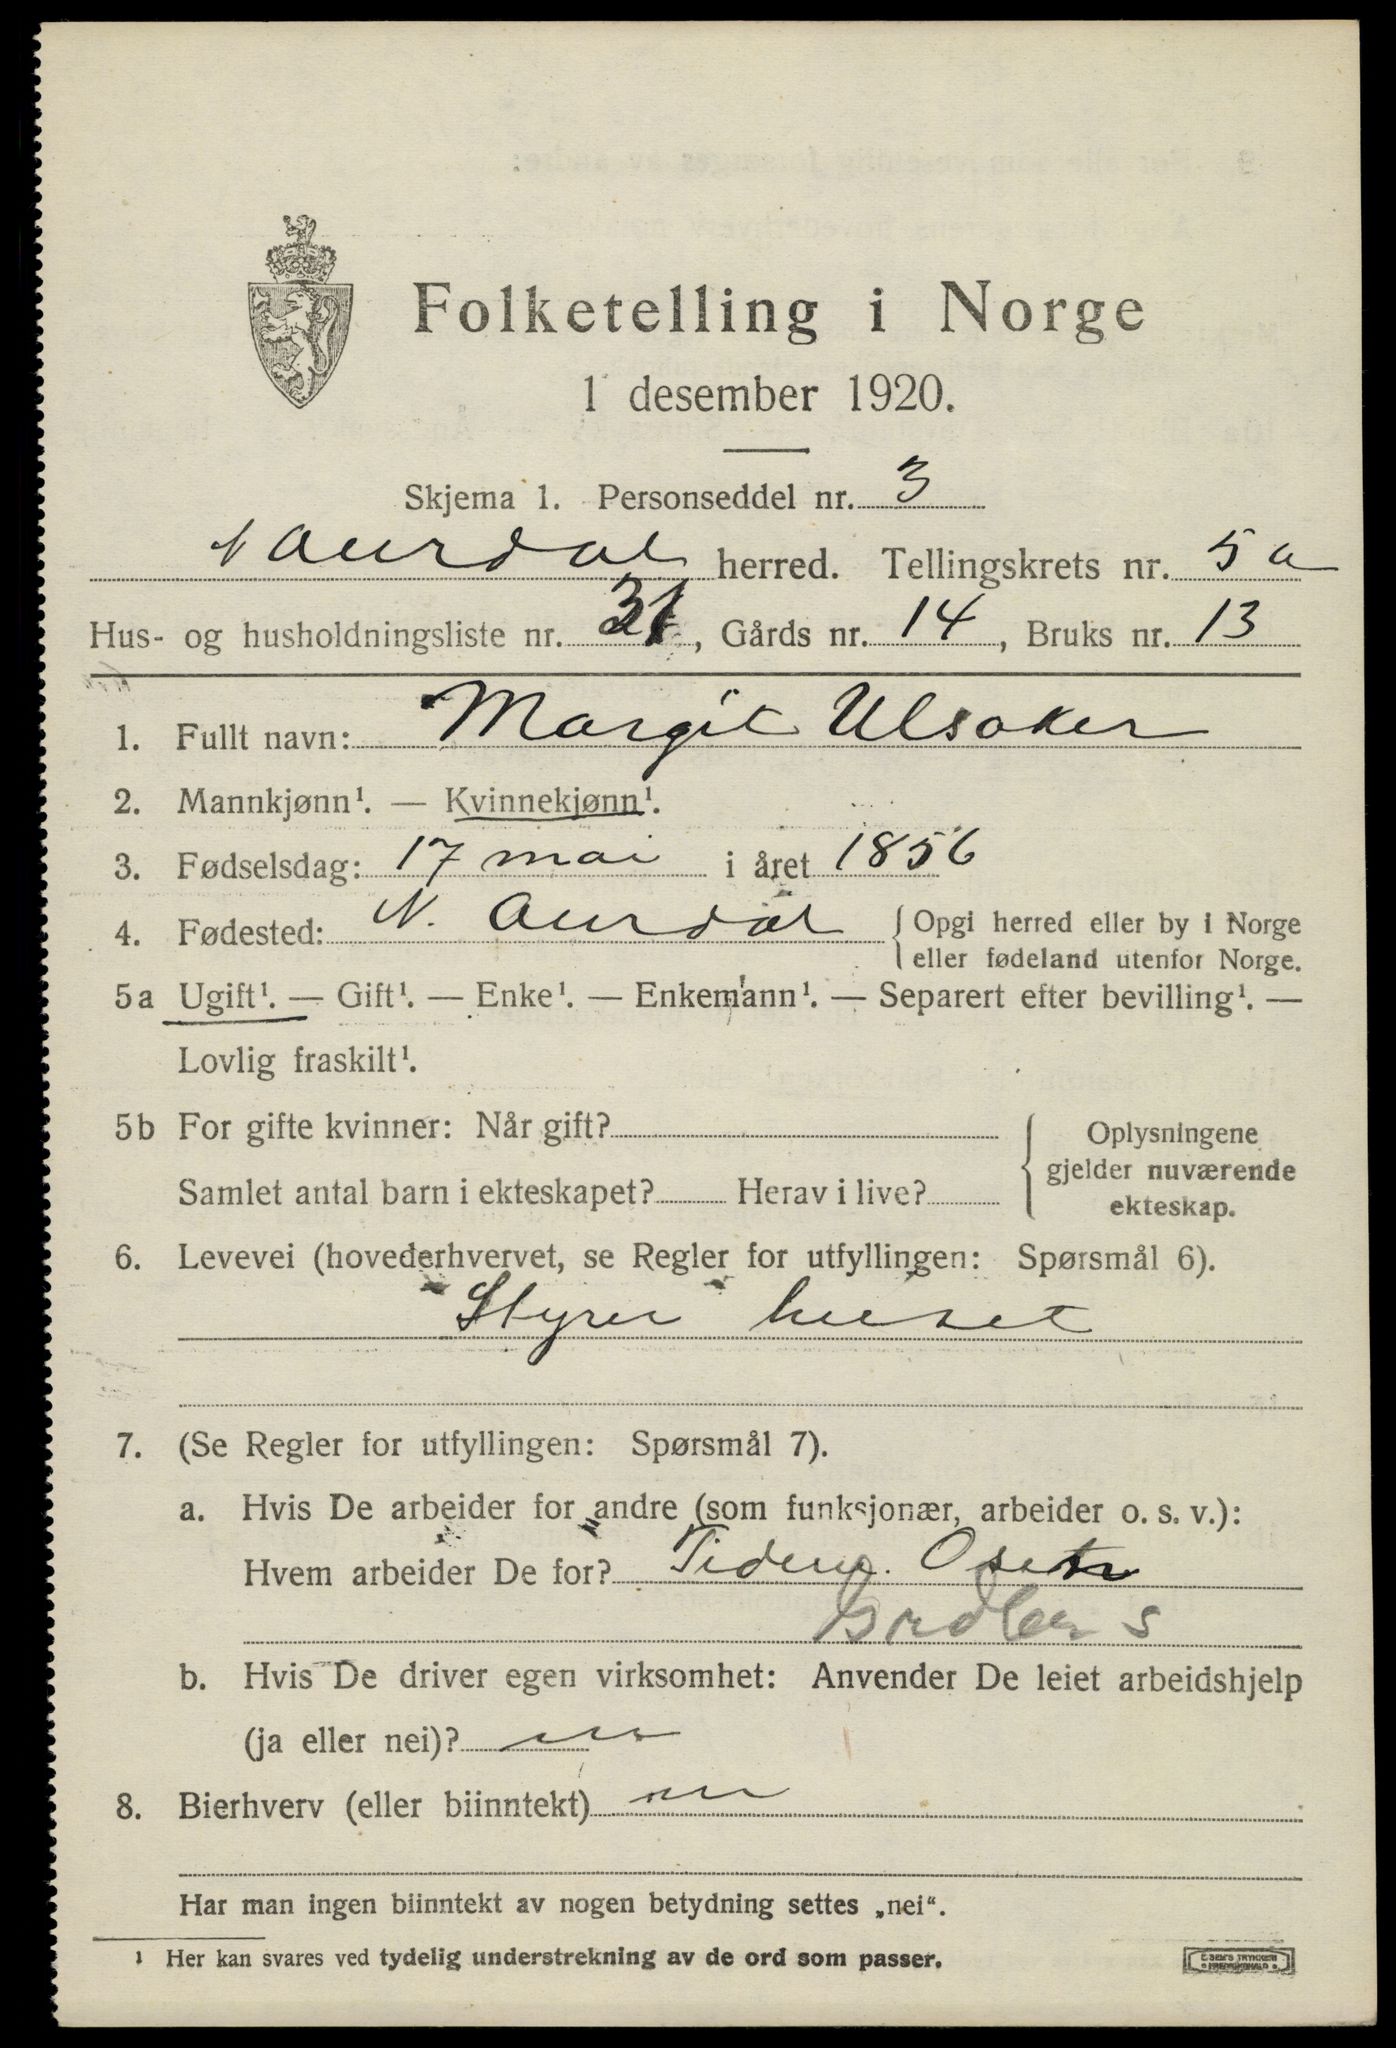 Folketelling i Norge
1 desember 1920.
Skjema 1. Personseddel nr. 3
N Aurdal herred. Tellingskrets nr. 5a
Hus- og husholdningsliste nr. 31, Gårds nr. 14, Bruks nr. 13
1. Fullt navn: Margit Ulsaker
2. Mannkjønn¹. — Kvinnekjønn¹.
3. Fødselsdag: 17 mai i året 1856
4. Fødested: N. Aurdal { Opgi herred eller by i Norge
eller fødeland utenfor Norge.
5a Ugift¹. — Gift¹. — Enke¹. — Enkemann¹. — Separert efter bevilling¹. —
Lovlig fraskilt¹.
5b For gifte kvinner: Når gift?
Samlet antal barn i ekteskapet? Herav i live?
{ Oplysningene
gjelder nuværende
ekteskap.
6. Levevei (hovederhvervet, se Regler for utfyllingen: Spørsmål 6).
Styrer huset
7. (Se Regler for utfyllingen: Spørsmål 7).
a. Hvis De arbeider for andre (som funksjonær, arbeider o. s. v.):
Hvem arbeider De for?
b. Hvis De driver egen virksomhet: Anvender De leiet arbeidshjelp
(ja eller nei)?
8. Bierhverv (eller biinntekt)
Har man ingen biinntekt av nogen betydning settes „nei“.
¹ Her kan svares ved tydelig understrekning av de ord som passer.
E. SEM'S TRYKKERI
FREDRIKSHALD